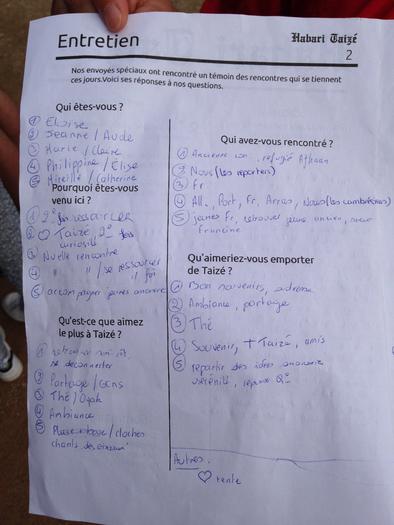 Entretien
Habari Taizé
2
Nos envoyés spéciaux ont rencontré un témoin des rencontres qui se tiennent
ces jours.Voici ses réponses à nos questions.
Qui êtes-vous ?
① Eloïse
② Jeanne / Aude
③ Marie / Claire
④ Philippine / Élise
⑤ Mireille / Catherine
Pourquoi êtes-vous
venu ici ?
① 2° fois ressourcer
② ♡ Taizé 2° fois
curiosité
③ Nvelle rencontre
④ " " / se ressourcer
foi
⑤ accompagner jeunes
Qu'est-ce que aimez
le plus à Taizé ?
①
se deconnecter
② Partage / Gens
③ Thé / Oyak
④ Ambiance
⑤ / cloches
chants des oiseaux
Qui avez-vous rencontré ?
① Ancienne réfugié Afghan
② Nous (les reporters)
③ Fr
④ All., Port, Fr, Arras, Nous (les cambrésiens)
⑤ jeunes Fr, retrouver jeune
Qu'aimeriez-vous emporter
de Taizé ?
① Bon souvenirs, adresse
② Ambiance, partage
③ Thé
④ Souvenir, + Taizé, amis
⑤ repartir des idées
sérénité, réponse Q°
Autres.
♡ tente